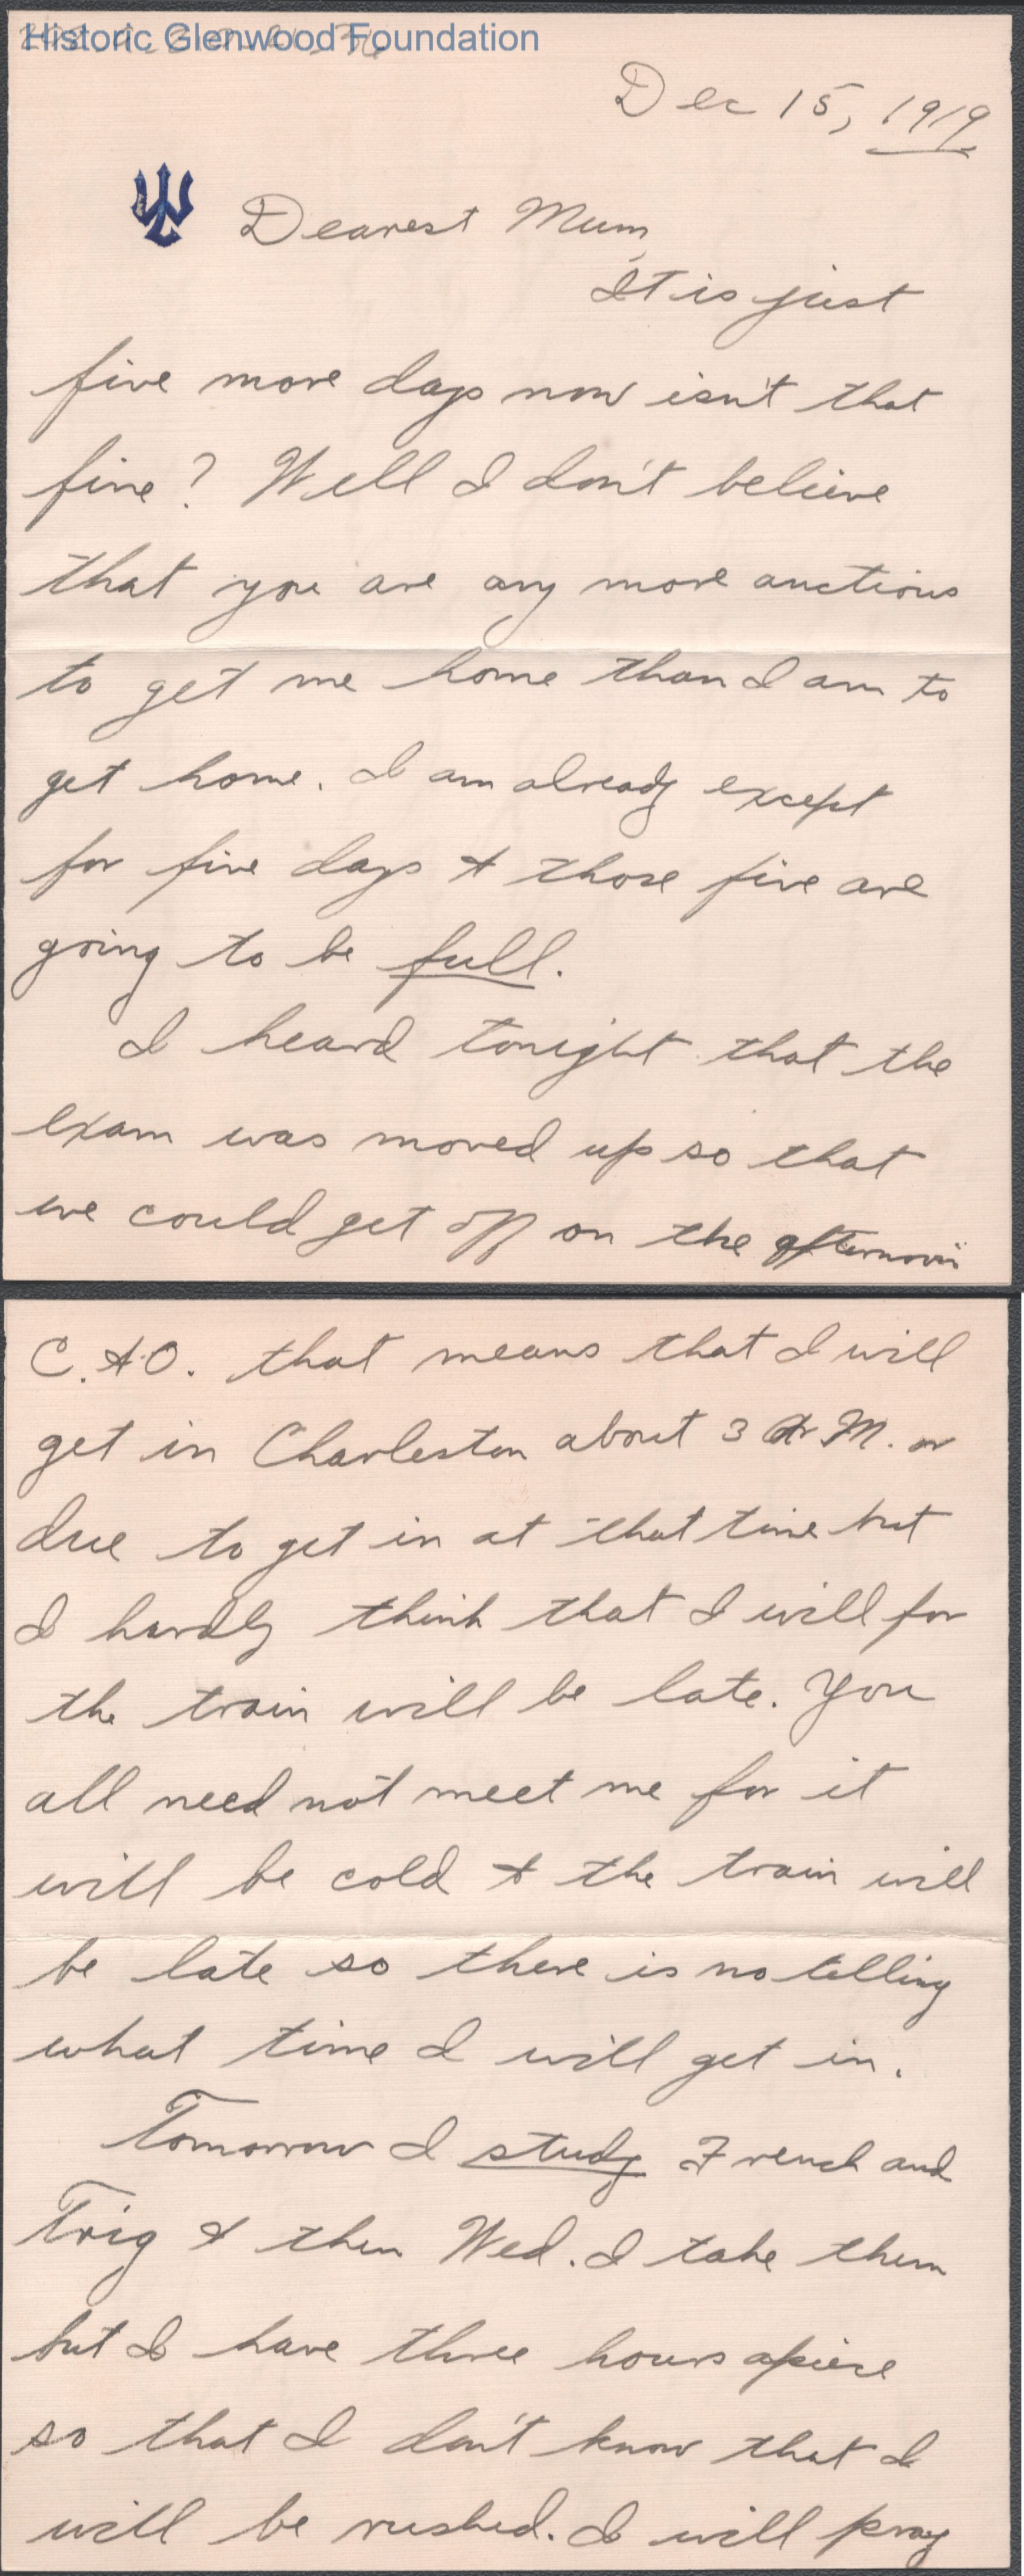 Historic Glenwood Foundation
Dec 15, 1919
Dearest Mum,
It is just
five more days now isn't that
fine? Well I don't believe
that you are any more anctious
to get me home than I am to
get home. I am already except
for five days & those five are
going to be full.
I heard tonight that the
exam was moved up so that
we could get off on the afternoon
C. & O. that means that I will
get in Charleston about 3 A.M. or
due to get in at that time but
I hardly think that I will for
the train will be late. You
all need not meet me for it
will be cold & the train will
be late so there is no telling
what time I will get in.
Tomorrow I study French and
Trig & then Wed. I take them
but I have three hours apiece
so that I don't know that I
will be rushed. I will pray